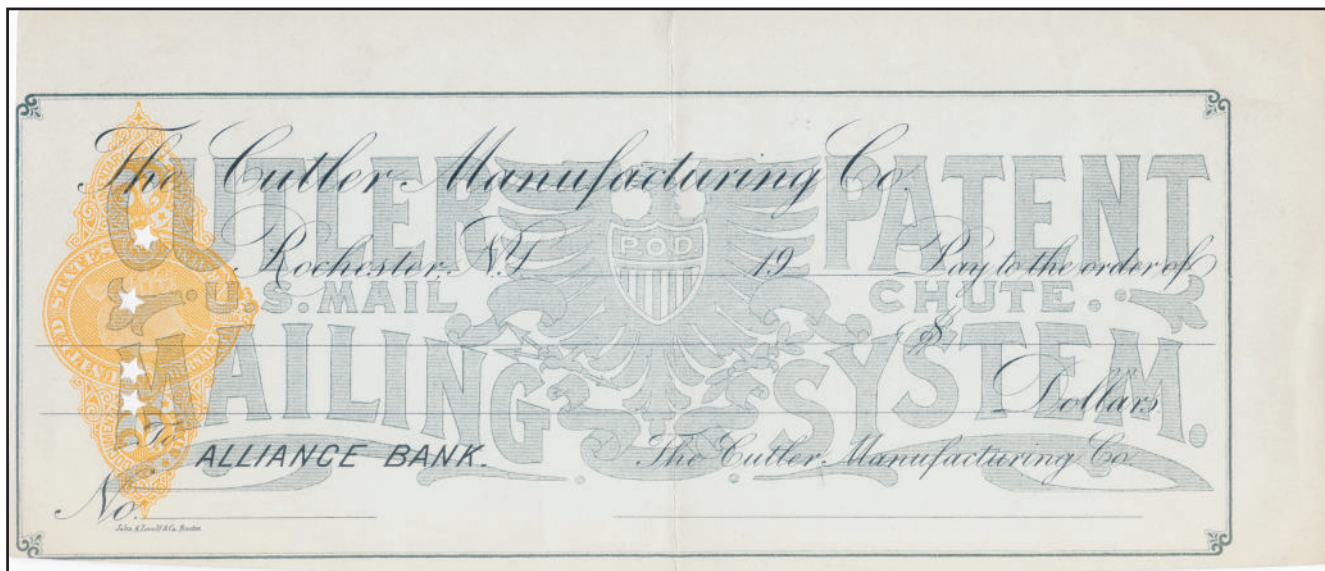 The Cutler Manufacturing Co.
CUTLER PATENT
Rochester, N.Y. 19 Pay to the order of
P.O.D
U.S. MAIL CHUTE.
$
MAILING SYSTEM.
Dollars
To ALLIANCE BANK. The Cutler Manufacturing Co
No.
John A. Lowell & Co. Boston
UNITED STATE